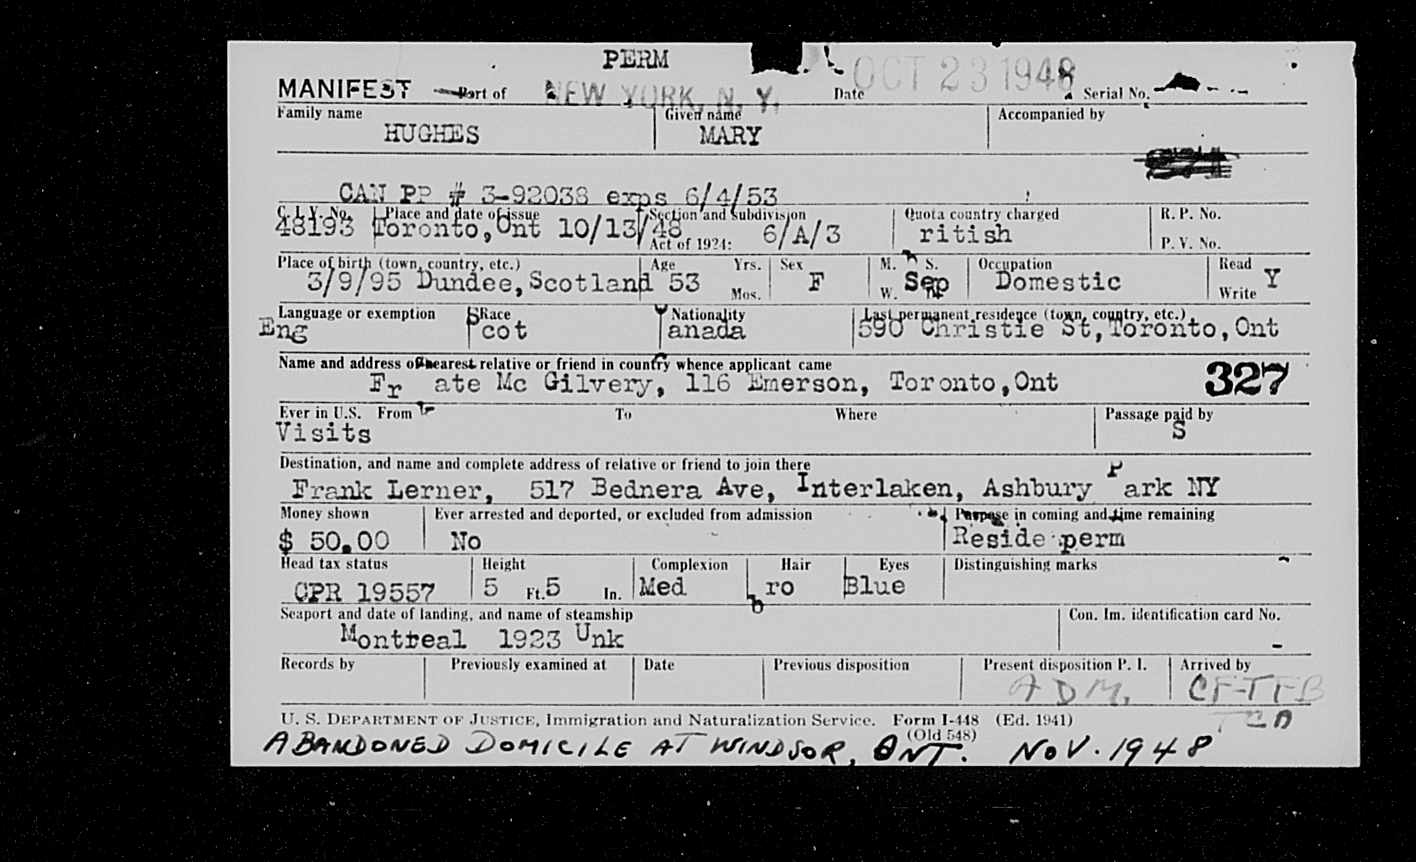 PERM
MANIFEST Port of NEW YORK, N. Y. Date OCT 23 1948 Serial No.
Family name Given name Accompanied by
HUGHES MARY
CAN PP # 3-92038 exps 6/4/53
C. I. V. No. Place and date of issue Section and subdivision Quota country charged R. P. No.
48193 Toronto,Ont 10/13/48 Act of 1924: 6/A/3 ritish P. V. No.
Place of birth (town, country, etc.) Age Yrs. Sex M. S. Occupation Read
3/9/95 Dundee,Scotland 53 Mos. F W. Sep Domestic Write Y
Language or exemption Race Nationality Last permanent residence (town, country, etc.)
Eng Scot anada 590 Christie St,Toronto,Ont
Name and address of nearest relative or friend in country whence applicant came
Fr ate Mc Gilvery, 116 Emerson, Toronto,Ont 327
Ever in U.S. From To Where Passage paid by
Visits S
Destination, and name and complete address of relative or friend to join there
Frank Lerner, 517 Bednera Ave, Interlaken, Ashbury Park NY
Money shown Ever arrested and deported, or excluded from admission Purpose in coming and time remaining
$ 50.00 No Reside perm
Head tax status Height Complexion Hair Eyes Distinguishing marks
CPR 19557 5 Ft. 5 In. Med bro Blue
Seaport and date of landing, and name of steamship Con. Im. identification card No.
Montreal 1923 Unk -
Records by Previously examined at Date Previous disposition Present disposition P. I. Arrived by
ADM.
U. S. DEPARTMENT OF JUSTICE, Immigration and Naturalization Service. Form I-448 (Ed. 1941)
(Old 548)
ABANDONED DOMICILE AT WINDSOR, ONT. NOV. 1948